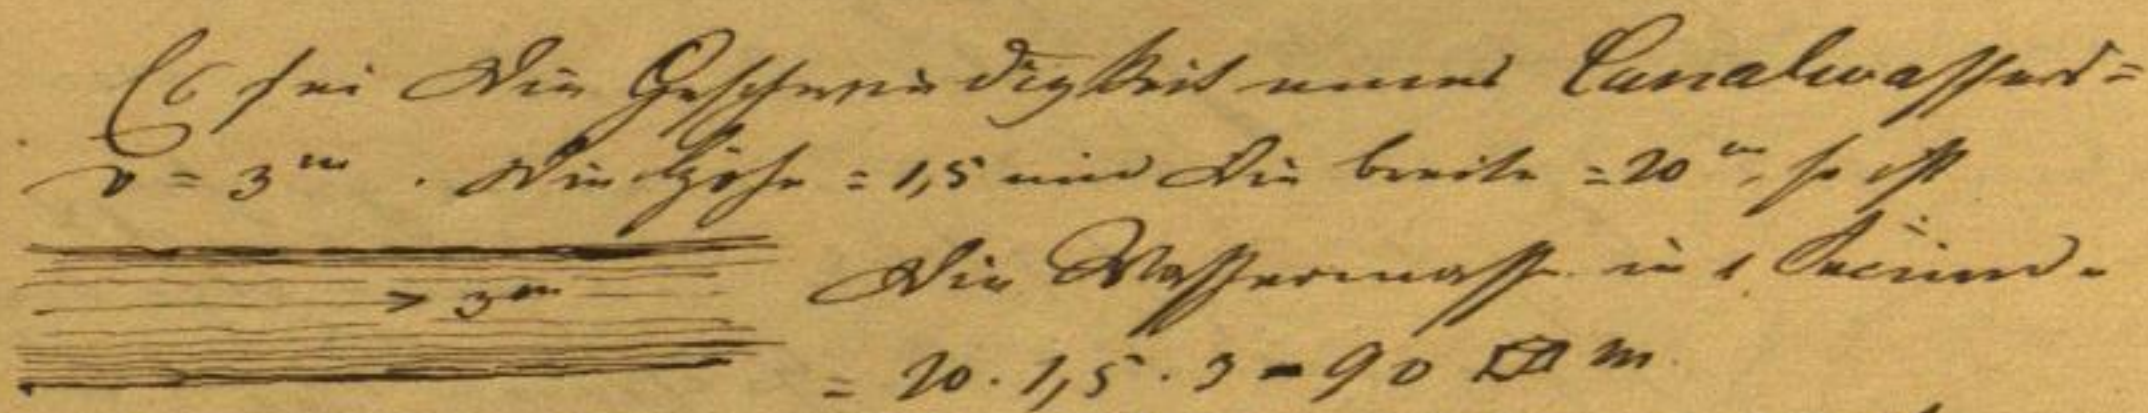 Es sei die Geschwindigkeit eines Canalwassers =
v = 3 m. die Höhe = 1,5 und die breite = 20 m, so ist
die Wassermasse in 1 Secunde
> 3 m
= 20 . 1,5 . 3 = 90 m